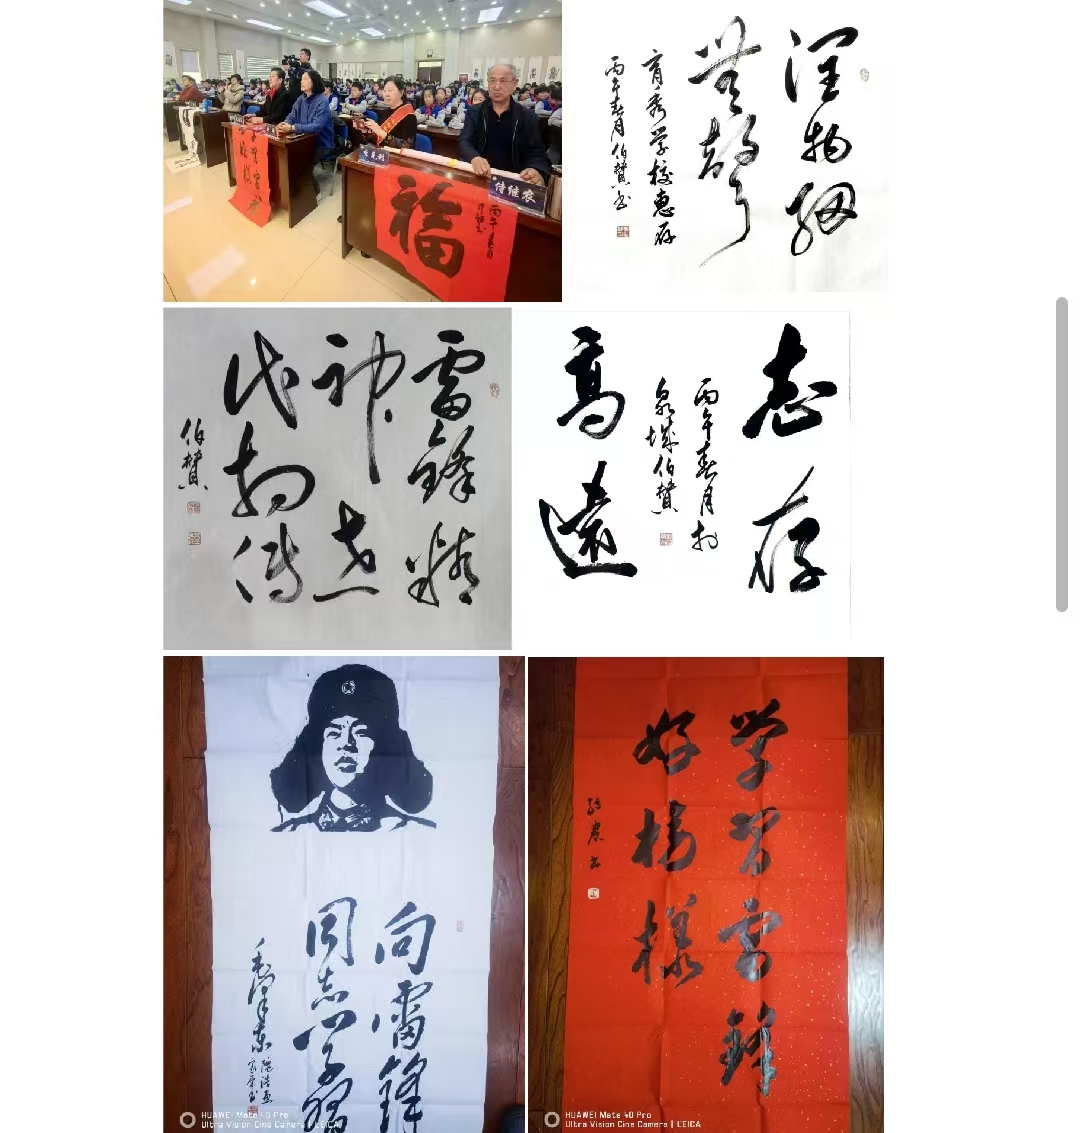 福
丙午春月
侍继农
润物细
无声
育秀学校惠存
丙午春月伯赞书
雷锋精
神世
代相传
伯赞
志存
丙午春月于
泉城伯赞
高远
向雷锋
同志学习
毛泽东
学习雷锋
好榜样
HUAWEI Mate 40 Pro
Ultra Vision Cine Camera | LEICA
HUAWEI Mate 40 Pro
Ultra Vision Cine Camera | LEICA